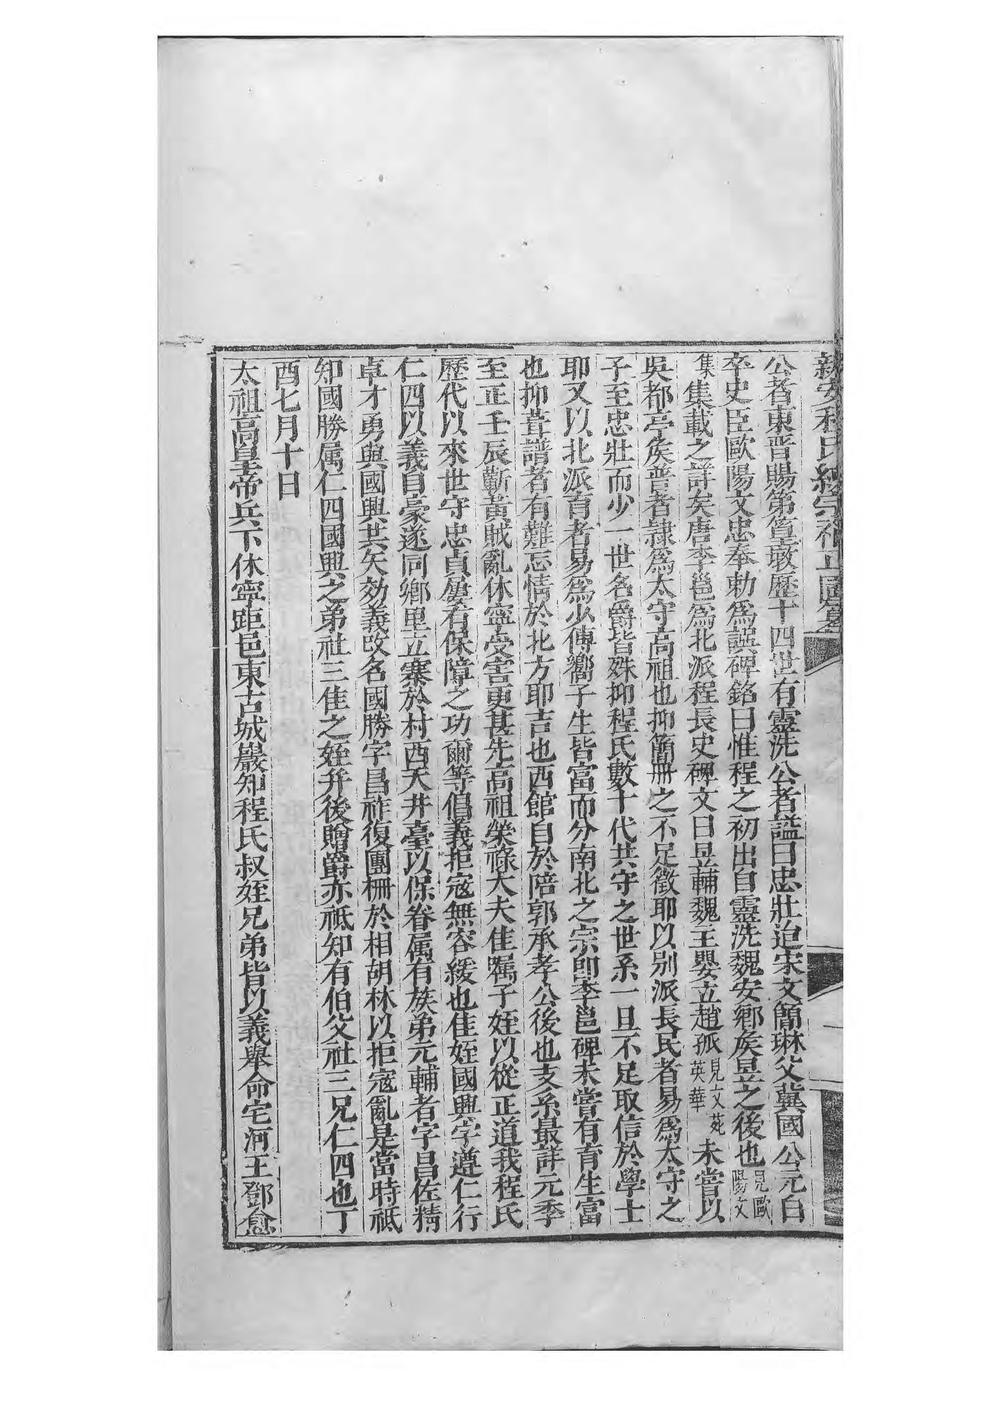 新安程氏統宗補正圖纂
公者東晋賜第篁墩歷十四世有靈洗公者謚曰忠壯迨宋文簡琳父冀國公元白
卒史臣歐陽文忠奉勅爲誤碑銘曰惟程之初出自靈洗魏安鄉矦昱之後也見歐陽文
集集載之詳矣唐李邕爲北派程長史碑文曰昱輔魏王嬰立趙孤見文苑英華未嘗以
吳都亭矦普者隷爲太守高祖也抑簡册之不足徵耶以別派長民者易爲太守之
子至忠壯而少一世名爵皆殊抑程氏數十代共守之世系一旦不足取信於學士
耶又以北派育者易爲少傅嚮子生皆富而分南北之宗卽李邕碑未嘗有育生富
也抑葺譜者有難忘情於北方耶吉也西館自於陪郭承孝公後也支系最詳元季
至正壬辰蘄黃賊亂休寧受害更甚先高祖榮祿大夫佳屬子姪以從正道我程氏
歷代以來世守忠貞屢有保障之功爾等倡義拒寇無容緩也佳姪國興字遵仁行
仁四以義自豪遂同鄉里立寨於村西天井臺以保眷属有族弟元輔者字昌佐精
卓才勇與國興共矢効義改名國勝字昌祚復團柵於相胡林以拒寇亂是當時祗
知國勝属仁四國興之弟社三佳之姪并後贈爵亦祗知有伯父社三兄仁四也丁
酉七月十日
太祖高皇帝兵下休寧距邑東古城巖知程氏叔姪兄弟皆以義舉命宅河王鄧愈